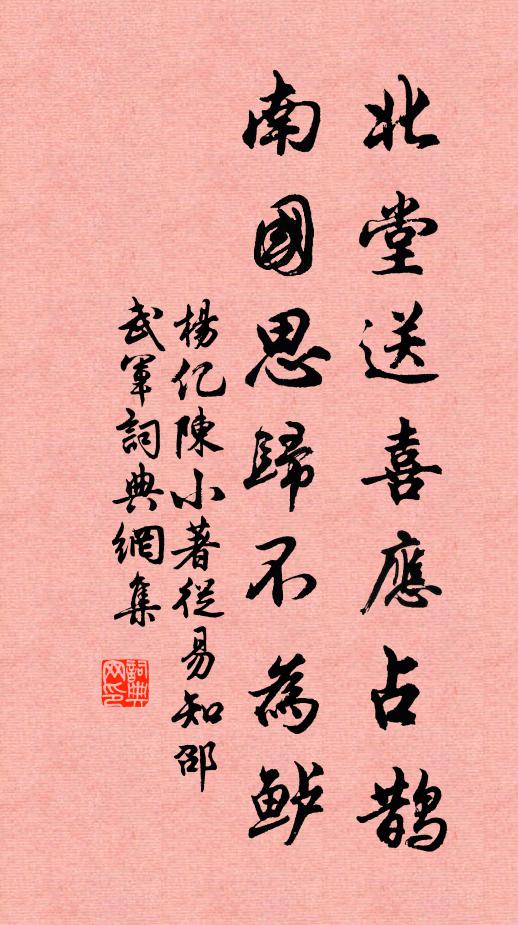 北堂送喜應占鵲
南國思歸不為鲈
楊亿陳小著從易知邵
武軍詞典網集
詞典网印